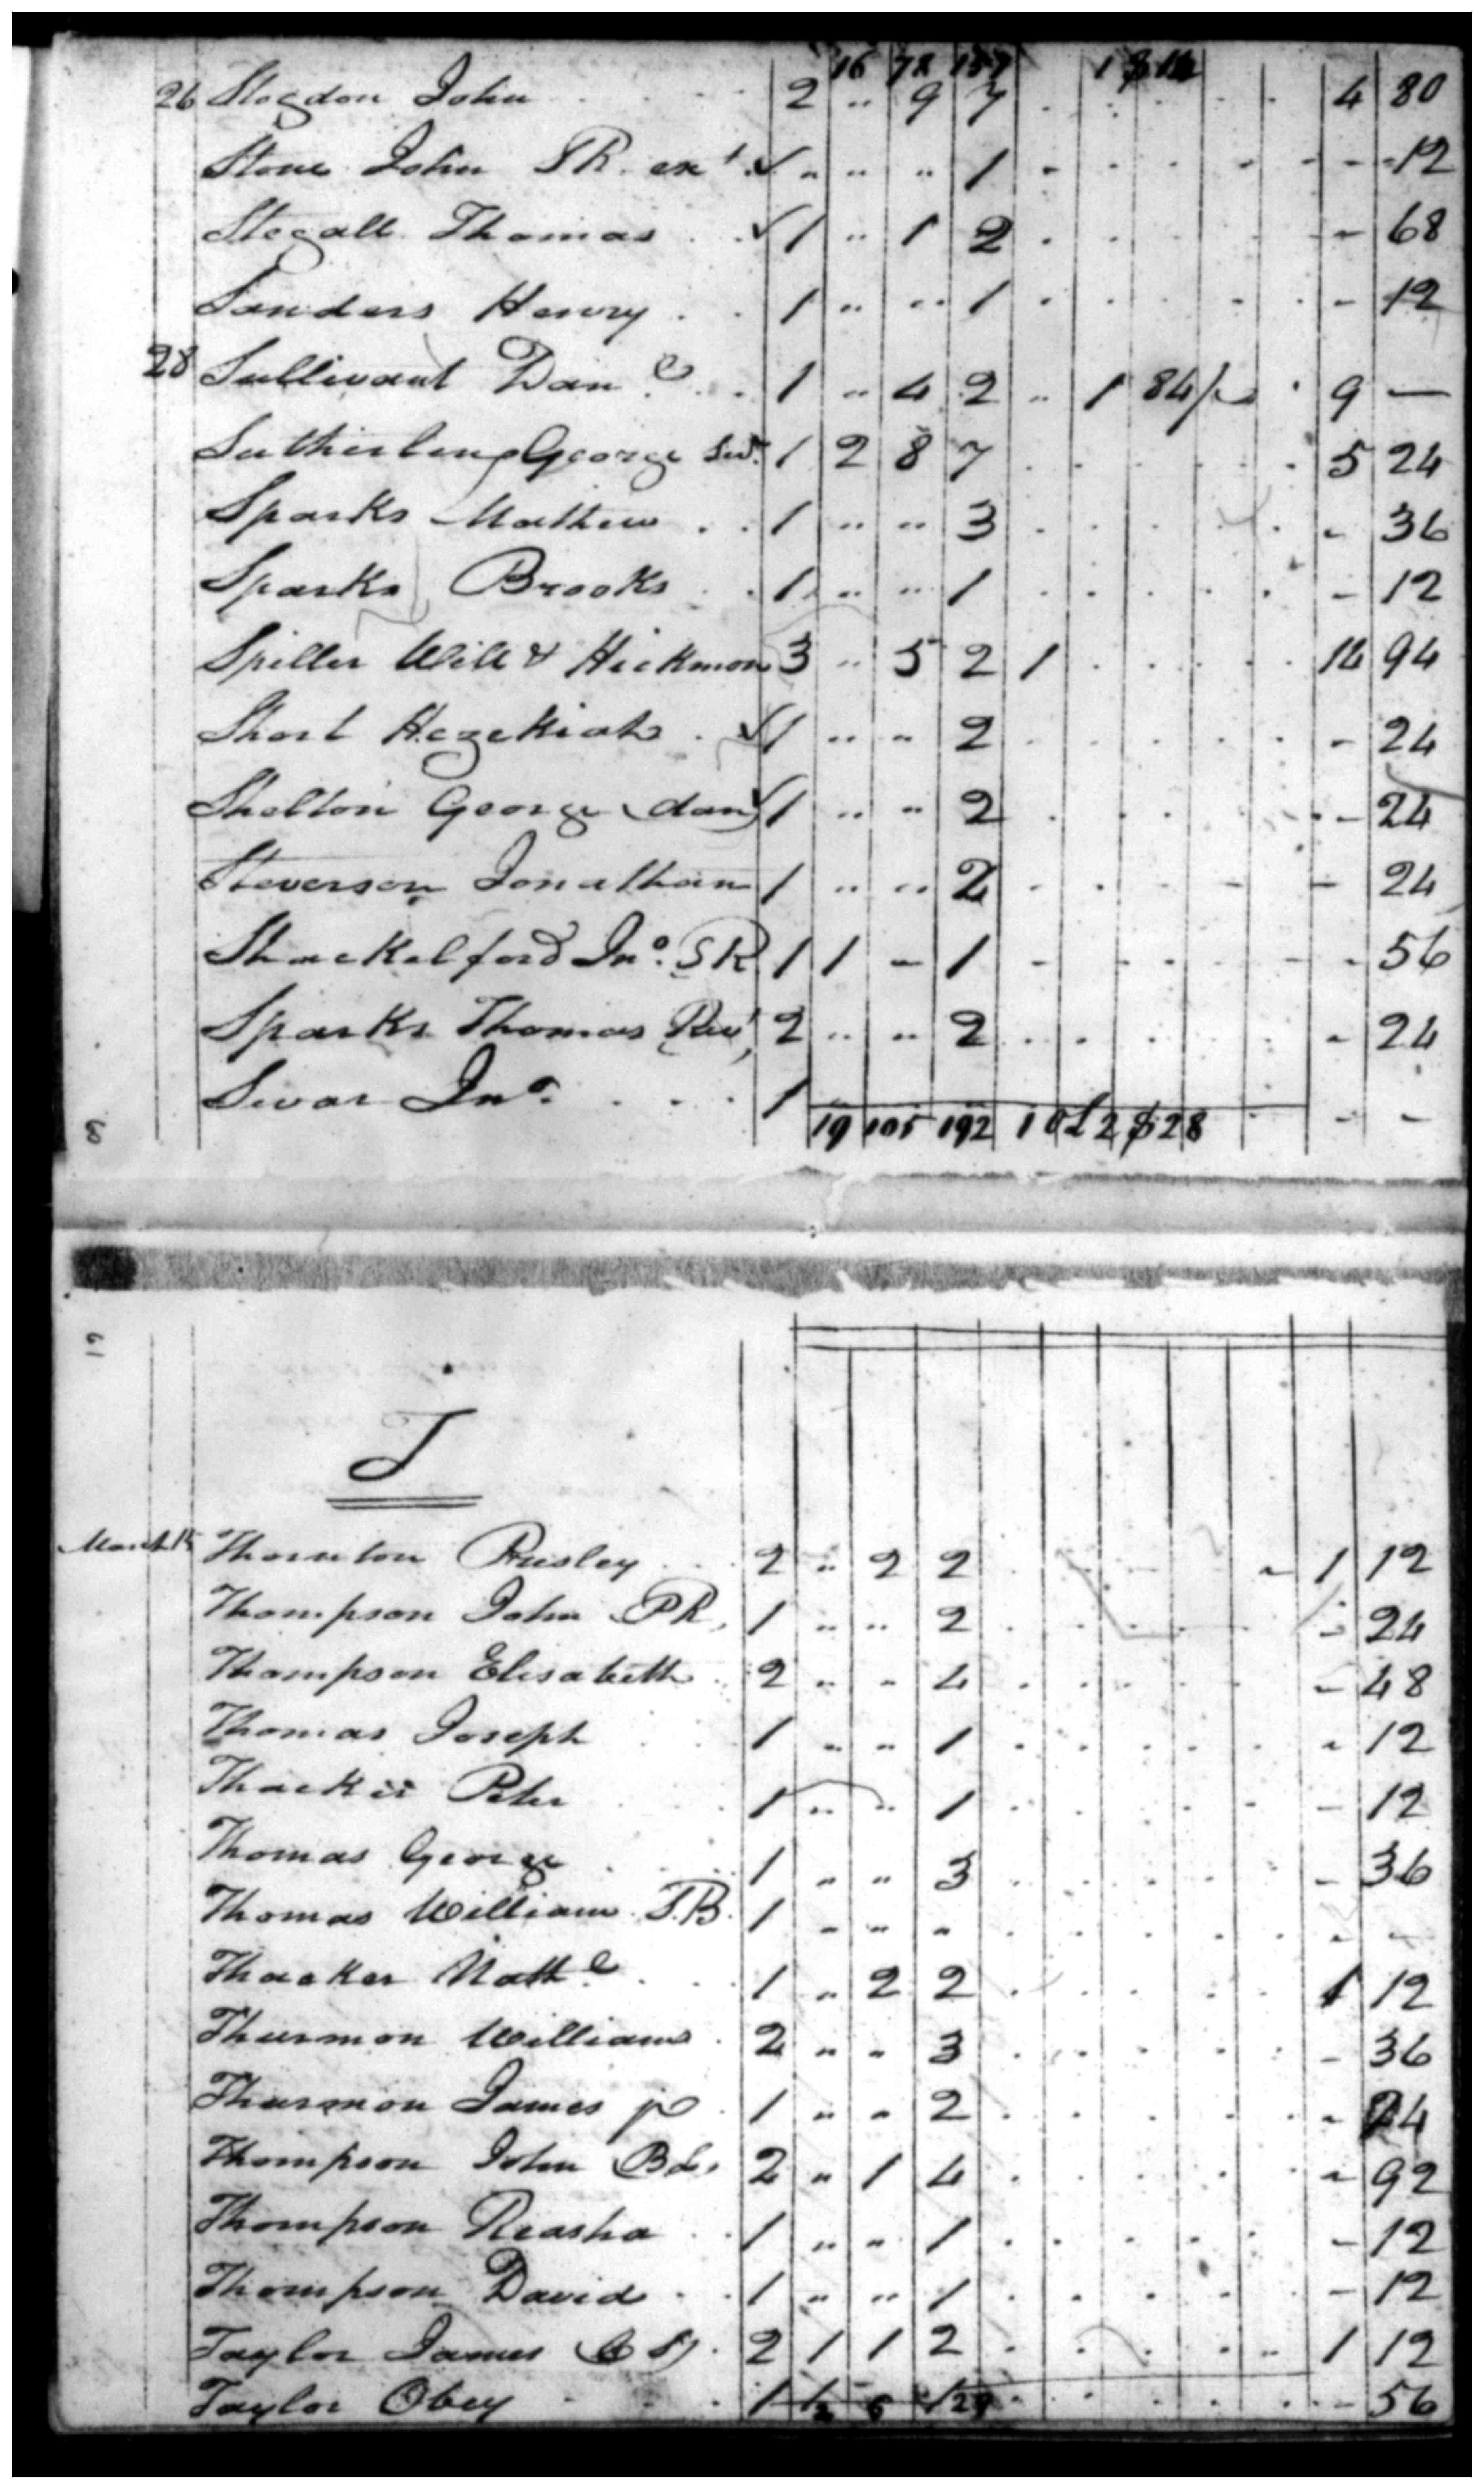 16 78 157 1 $14
26 Slogdon John 2 " 9 7 4 80
Stone John SR. ext ✓ " " " 1 - - 12
Stegall Thomas ✓ 1 " 1 2 - 68
Sanders Henry 1 " " 1 - 12
28 Sullivant Dan.l 1 " 4 2 " 1 84/ 9 —
Sutherling George 1 2 8 7 5 24
Sparks Mathew 1 " " 3 - 36
Sparks Brooks 1 " " 1 - 12
Spiller Will & Hickmon 3 " 5 2 1 14 94
Short Hezekiah ✓ 1 " " 2 - 24
Shelton George (dan) ✓ 1 " " 2 - 24
Steverson Jonathan 1 " " 2 - 24
Shackelford Jno. SR 1 1 - 1 - 56
Sparks Thomas 2 " " 2 - 24
Swar Jno. 1 - -
19 105 192 1 2 $28
T
March 15 Thornton Presley 2 " 2 2 1 12
Thompson John PR, 1 " " 2 - 24
Thompson Elisabeth 2 " " 4 - 48
Thomas Joseph 1 " " 1 - 12
Thacker Peter 1 " " 1 - 12
Thomas George 1 " " 3 - 36
Thomas William 1 " " " - -
Thacker Nath.l 1 " 2 2 1 12
Thurmon William 2 " " 3 - 36
Thurmon James 1 " " 2 - 24
Thompson John 2 " 1 4 - 92
Thompson Reasha 1 " " 1 - 12
Thompson David 1 " " 1 - 12
Taylor James 2 1 1 2 1 12
Taylor Obey 1 1 " 1 - 56
2 6 29